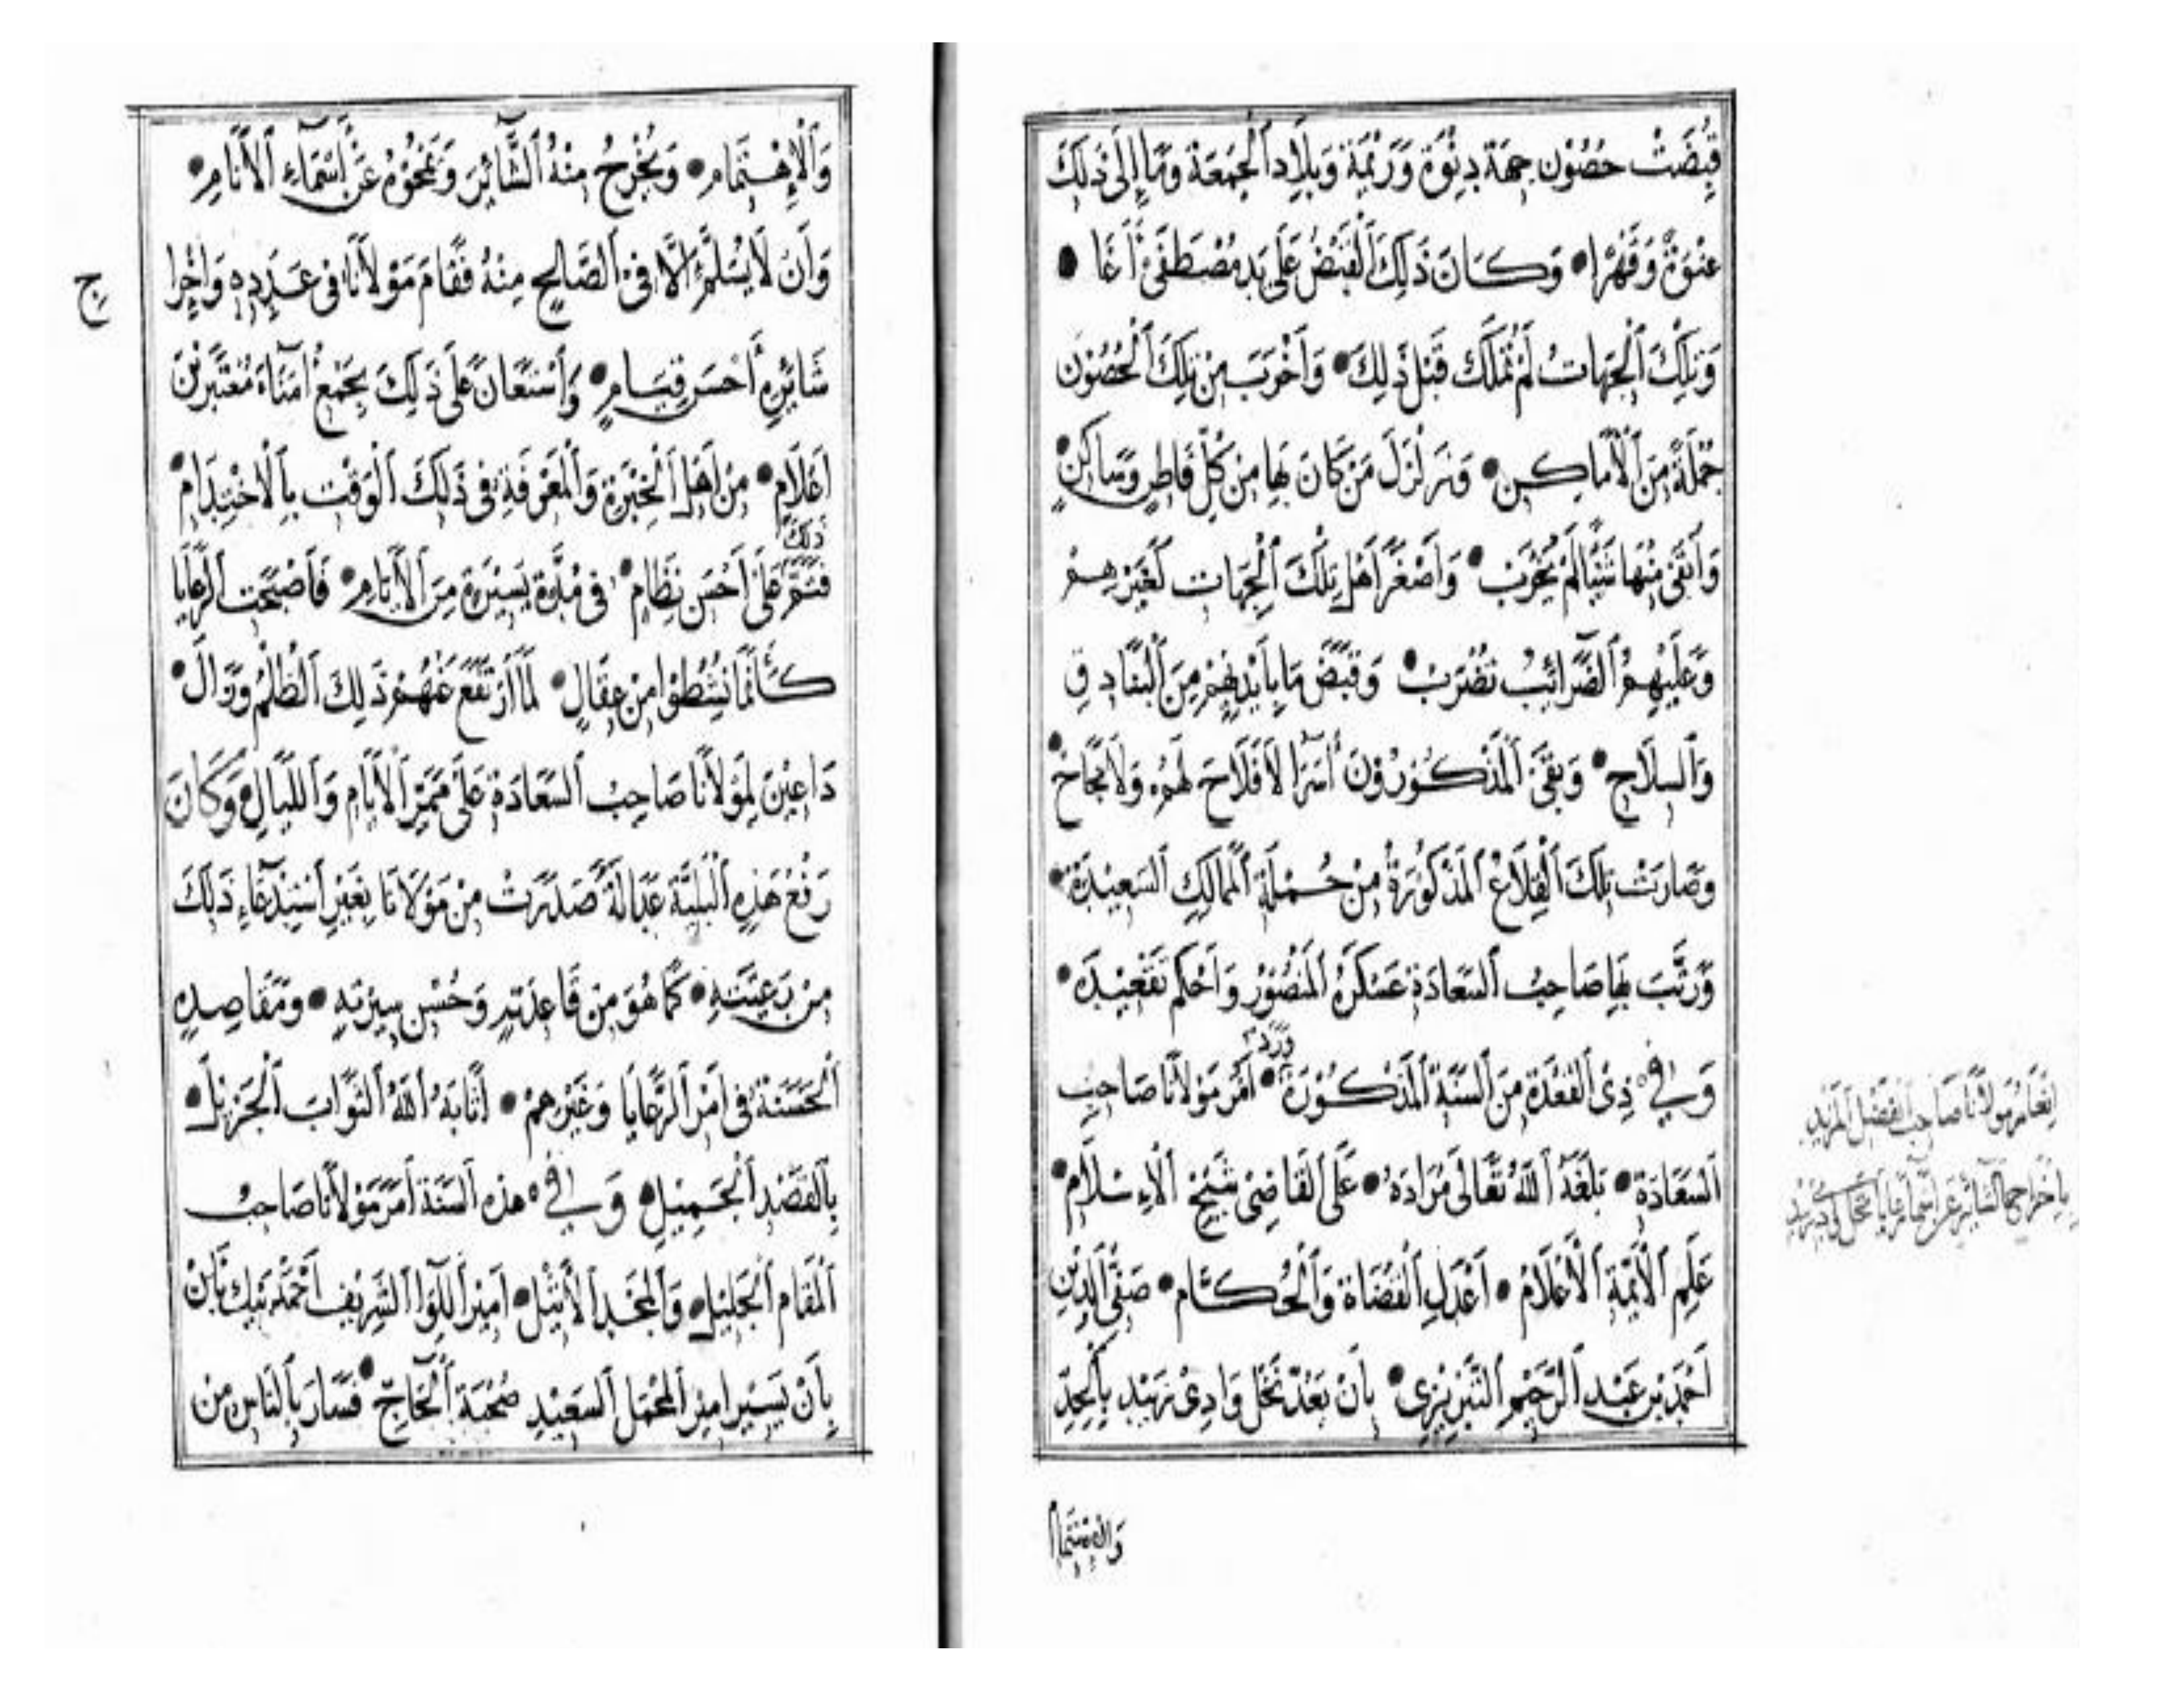 قُبِضَتْ حُصُوْن جِهَة دِنْوَة وَرَيْمَة وَبِلَاد اَلْجُمَعَة وَمَا إِلَى ذَلِكَ
عَنْوَةً وَقَهْرًا • وَكَانَ ذَلِكَ اَلْقَبْضُ عَلَى يَدِ مُصْطَفَى أَغَا •
وَتِلْكَ اَلْجِهَاتُ لَمْ تُمْلَك قَبْلَ ذَلِكَ • وَأَخْرَبَ مِنْ تِلْكَ اَلْحُصُوْن
جُمْلَةً مِنَ اَلْأَمَاكِنِ • وَزَلْزَلَ مَنْ كَانَ بِهَا مِنْ كُلِّ قَاطِنٍ وَسَاكِنٍ •
وَأَبْقَى مِنْهَا شَيْئًا لَمْ يُخْرَبْ • وَأَصْغَرَ أَهْلَ تِلْكَ اَلْجِهَات كَغَيْرِهِمْ
وَعَلَيْهِمُ اَلضَّرَائِبُ تُضْرَبْ • وَقَبَضَ مَا بِأَيْدِيْهِمْ مِنَ اَلْبَنَادِقِ
وَاَلسِلَاحِ • وَبَقِىَ اَلْمَذْكُوْرُوْنَ أُسَرَا لَا فَلَاحَ لَهُمْ وَلَا نَجَاحَ •
وَصَارَتْ تِلْكَ اَلْقِلَاعُ اَلْمَذْكُوْرَةُ مِنْ جُمْلَةِ اَلْمَمَالِكِ اَلسَعِيْدَةِ •
وَرَتَّبَ بِهَا صَاحِبُ اَلسَعَادَةِ عَسْكَرَهُ اَلْمَنْصُوْر وَأَحْكَمَ تَقْعِيْدَهُ •
وَفِي ذِى اَلْقَعْدَةِ مِنَ اَلسَنَةِ اَلْمَذْكُوْرَة • وَرَدَ أَمْرُ مَوْلَانَا صَاحِبِ
اَلسَعَادَةِ • بَلَغَهُ اَللهُ تَعَالَى مُرَادَهُ • عَلَى اَلْقَاضِى شَيْخِ اَلْإِسْلَامِ •
عَلَمِ اَلْأَئِمَّةِ اَلْأَعْلَامِ • أَعْدَلِ اَلْقُضَاةِ وَاَلْحُكَّامِ • صَفِىِّ اَلدِيْنِ
أَحْمَد بْنِ عَبْدِ اَلرَّحِيْمِ اَلتَبْرِيْزِى • بِأَنْ يَعُدَّ نَخْلَ وَادِىْ زَبِيْدِ بِاَلْجِدِّ
وَالْاِهْتِمَامِ
مَوْلَانَا صَاحِبِ اَلْفَضْلِ اَلْمَزِيْدِ
بِإِخْرَاجِ اَلشَائِرِ عَنْ
وَاَلْإِهْتِمَامِ • وَيُخْرِجُ مِنْهُ اَلشَّائِرَ وَيَمْحُوْهُ عَنْ أَسْمَاءِ اَلْأَنَامِ •
وَأَنْ لَا يُسَلَّمَ إِلَّا فِى اَلصَّالِحِ مِنْهُ فَقَامَ مَوْلَانَا فِى عَدَدِهِ وَإِخْرَا
ج
شَائِرِهِ أَحْسَنَ قِيَامٍ • وَاَسْتَعَانَ عَلَى ذَلِكَ بِجَمْعِ أُمَنَاءَ مُعْتَبَرِيْنَ
أَعْلَامٍ • مِنْ أَهْلِ اَلْخِبْرَةِ وَاَلْمَعْرِفَةِ فِى ذَلِكَ اَلْوَقْت بِاَلْاخْتِدَامِ •
فَتَمَّ ذَلِكَ عَلَى أَحْسَنِ نِظَامٍ • فِى مُدَّةٍ يَسِيْرَةٍ مِنَ اَلْأَيَّامِ • فَأَصْبَحَت اَلرَّعَايَا
كَأَنَّمَا نُشِطُوْا مِنْ عِقَالٍ • لَمَّا اَرْتَفَعَ عَنْهُمْ ذَلِكَ اَلظُلْمُ وَزَالَ •
دَاعِيْنَ لِمَوْلَانَا صَاحِبِ اَلسَعَادَةِ عَلَى مَمَرِّ اَلْأَيَّامِ وَاَللَيَالِ • وَكَانَ
رَفْعُ هَذِهِ اَلْبَلِيَّة عَدَالَةً صَدَرَتْ مِنْ مَوْلَانَا بِغَيْرِ اَسْتِدْعَاءِ ذَلِكَ
مِنْ رَعِيَّتِهِ • كَمَا هُوَ مِنْ قَاعِدَتِهِ وَحُسْنِ سِيْرَتِهِ • وَمَقَاصِدِهِ
اَلْحَسَنَة فِى أَمْرِ اَلرَّعَايَا وَغَيْرِهِمْ • أَثَابَهُ اَللهُ اَلثَوَابَ اَلْجَزِيْلَ •
بِاَلْقَصْدِ اَلْجَمِيْلِ • وَفِي هذه اَلسَنَة أَمَرَ مَوْلَانَا صَاحِبُ
اَلْمَقَامِ اَلْجَلِيْلِ • وَاَلْمَجْدِ اَلْأَثِيْلِ • أَمِيْرَ اَللِّوَا اَلشَرِيْف أَحْمَد بَيْك
بِأَنْ يَسِيْرَ أَمِيْرَ اَلْمَحْمَلِ اَلسَعِيْدِ صُحْبَةَ اَلْحَاجّ • فَسَارَ بِاَلنَاسِ مِنْ